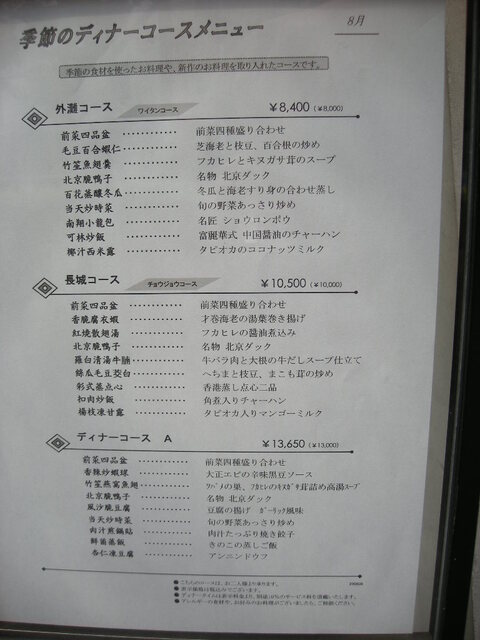 季節のディナーコースメニュー
8月
季節の食材を使ったお料理や、新作のお料理を取り入れたコースです。
外灘コース ワイタンコース ¥8,400 (¥8,000)
前菜四品盆 ………… 前菜四種盛り合わせ
毛豆百合蝦仁 ………… 芝海老と枝豆、百合根の炒め
竹笙魚翅羹 ………… フカヒレとキヌガサ茸のスープ
北京脆鴨子 ………… 名物 北京ダック
百花蒸釀冬瓜 ………… 冬瓜と海老すり身の合わせ蒸し
当天炒時菜 ………… 旬の野菜あっさり炒め
南翔小籠包 ………… 名匠 ショウロンポウ
可林炒飯 ………… 富麗華式 中国醤油のチャーハン
椰汁西米露 ………… タピオカのココナッツミルク
長城コース チョウジョウコース ¥10,500 (¥10,000)
前菜四品盆 ………… 前菜四種盛り合わせ
香脆腐衣蝦 ………… 才巻海老の湯葉巻き揚げ
紅燒散翅湯 ………… フカヒレの醤油煮込み
北京脆鴨子 ………… 名物 北京ダック
羅白清湯牛腩 ………… 牛バラ肉と大根の牛だしスープ仕立て
絲瓜毛豆茭白 ………… へちまと枝豆、まこも茸の炒め
彩式蒸点心 ………… 香港蒸し点心二品
扣肉炒飯 ………… 角煮入りチャーハン
楊枝凍甘露 ………… タピオカ入りマンゴーミルク
ディナーコース A ¥13,650 (¥13,000)
前菜四品盆 ………… 前菜四種盛り合わせ
香辣炒蝦球 ………… 大正エビの辛味黒豆ソース
竹笙燕窩魚翅 ………… ツバメの巣、フカヒレのキヌガサ茸詰め高湯スープ
北京脆鴨子 ………… 名物 北京ダック
風沙脆豆腐 ………… 豆腐の揚げ ガーリック風味
当天炒時菜 ………… 旬の野菜あっさり炒め
肉汁煎鍋貼 ………… 肉汁たっぷり焼き餃子
鮮菌蒸飯 ………… きのこの蒸しご飯
杏仁凍豆腐 ………… アンニンドウフ
●こちらのコースは、お二人様より承ります。
●表示価格は税込みでございます。
●ディナータイムは表示料金より、別途10%のサービス料を頂戴いたします。
●アレルギーの食材や、お好みのお料理がございましたら、ご相談ください。